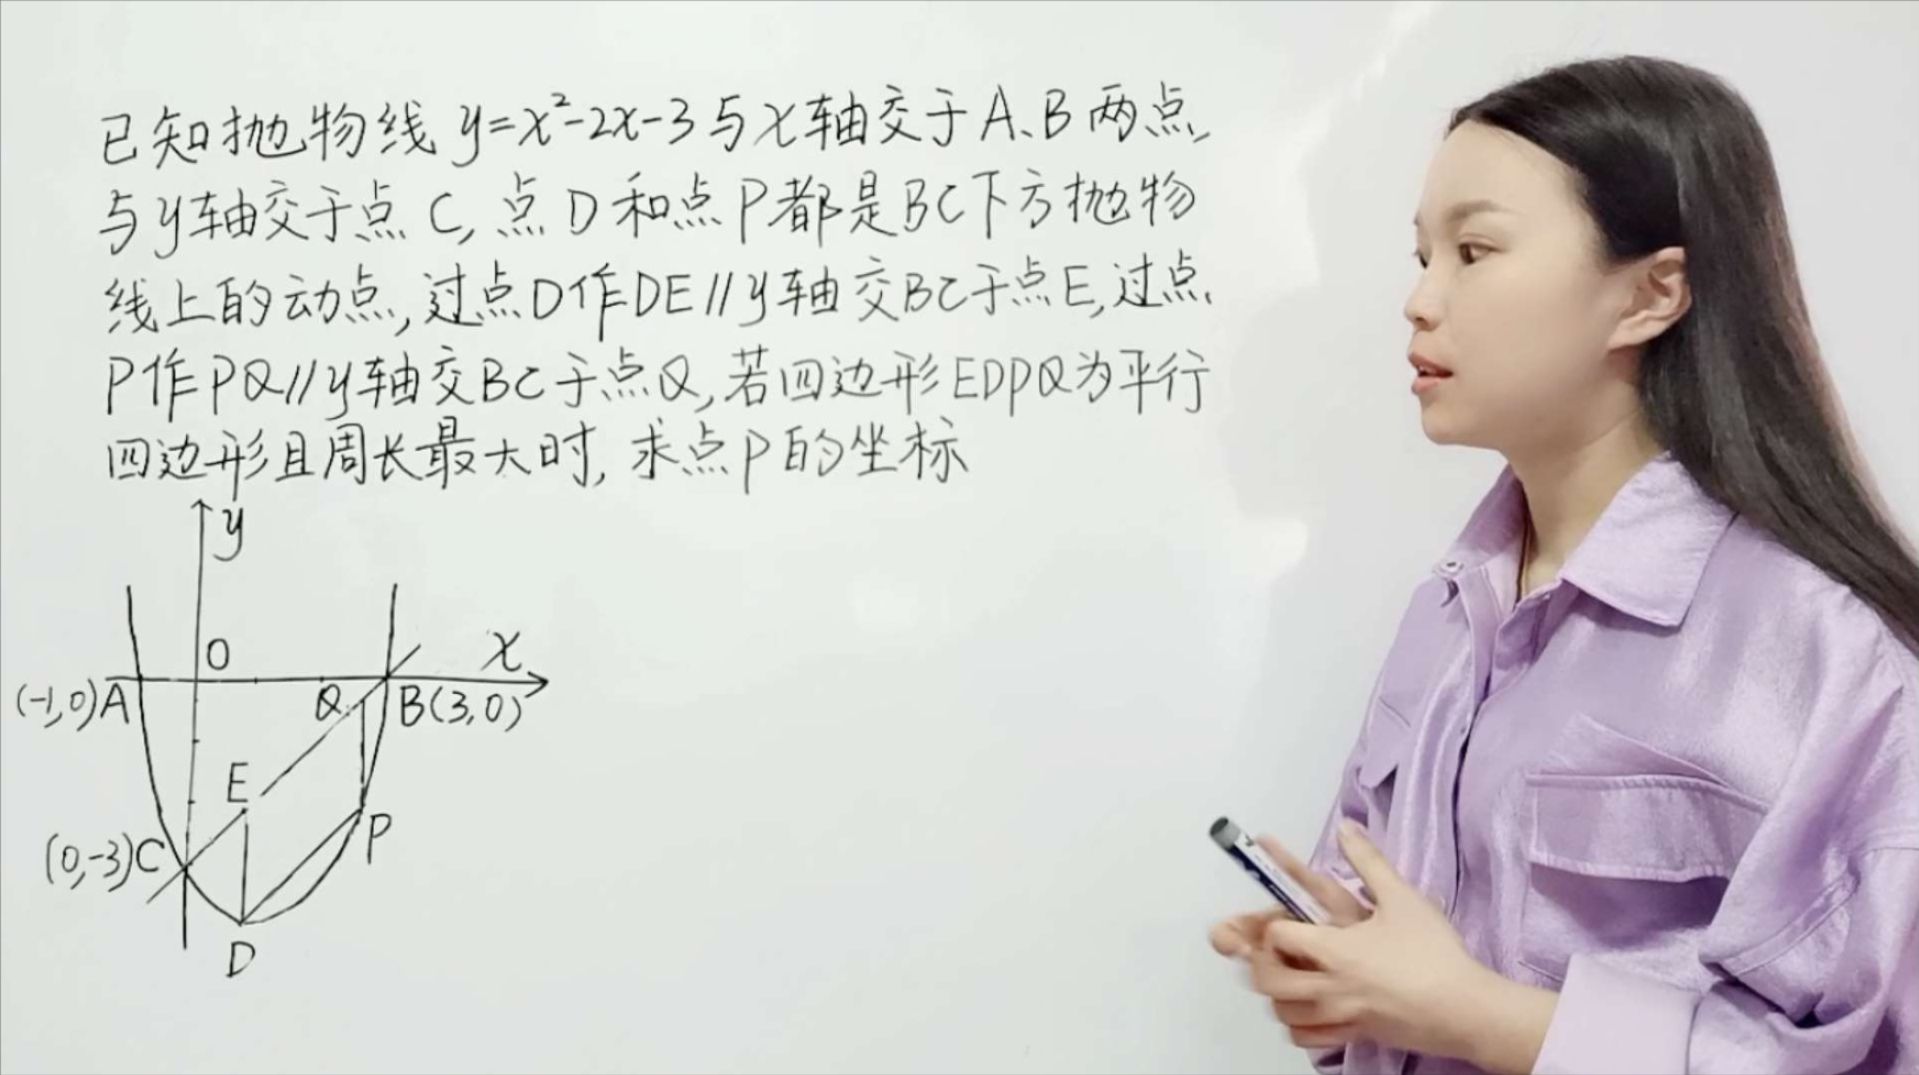 已知抛物线 y=x²-2x-3与x轴交于A、B两点,
与y轴交于点C,点D和点P都是BC下方抛物
线上的动点,过点D作DE//y轴交BC于点E,过点
P作PQ//y轴交BC于点Q,若四边形EDPQ为平行
四边形且周长最大时,求点P的坐标
y
O
x
(-1,0)A
Q
B(3,0)
E
(0,-3)C
P
D